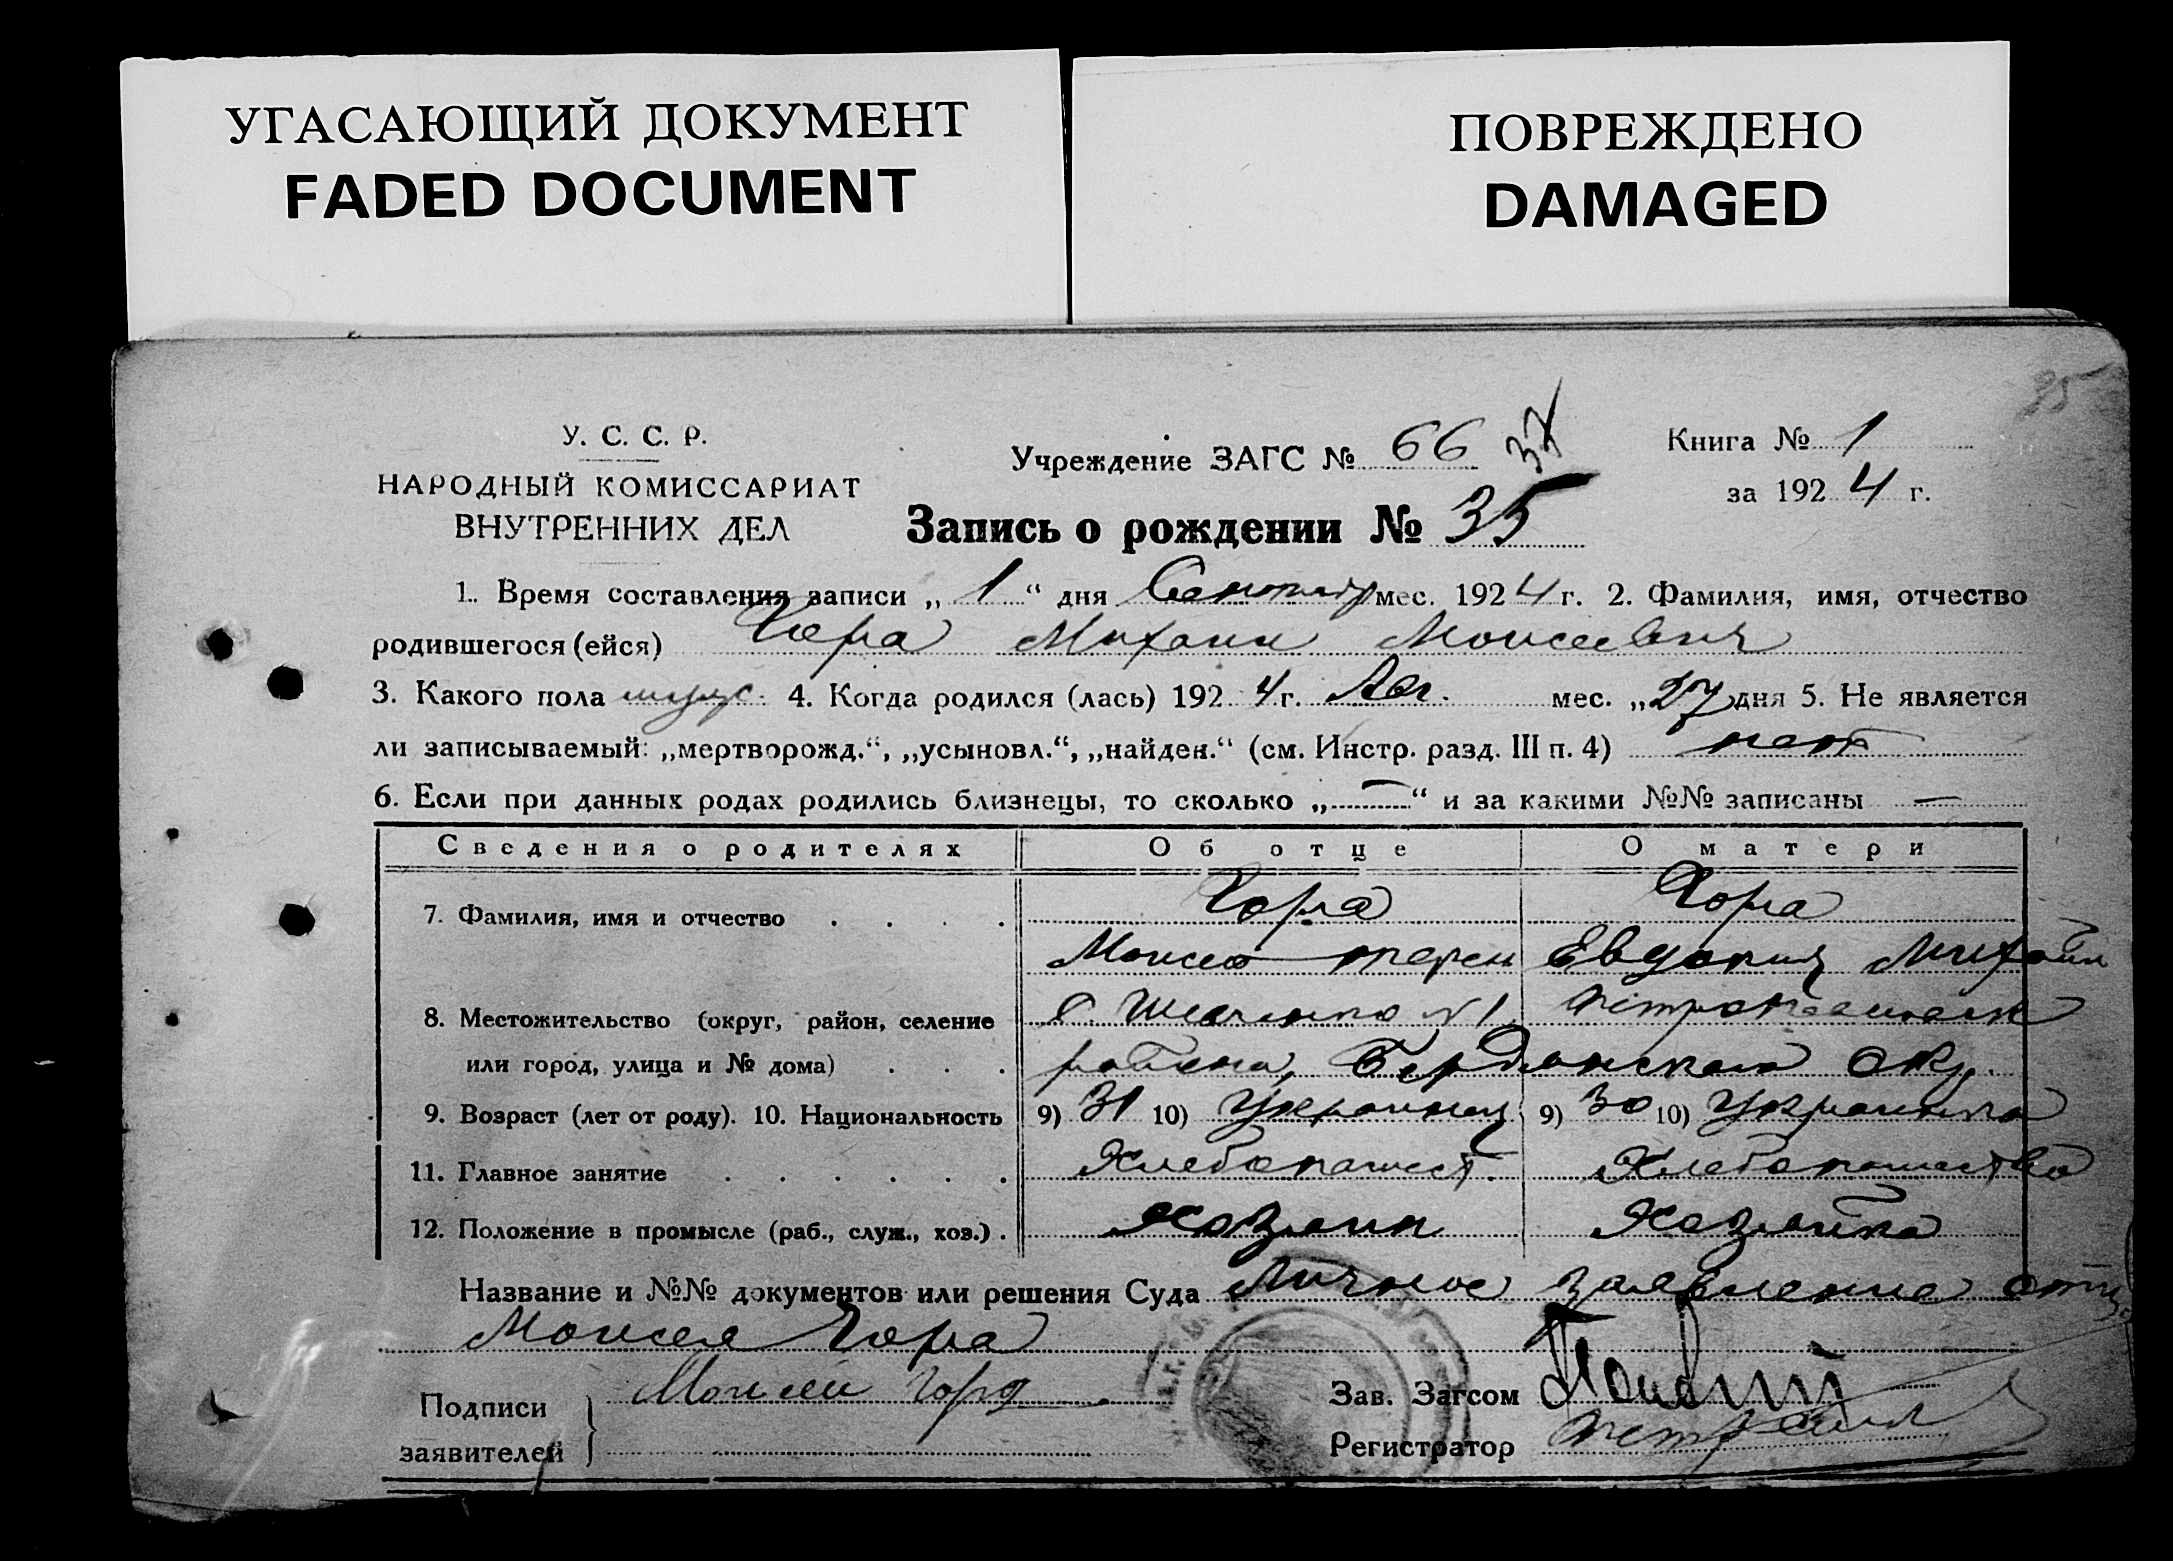 УГАСАЮЩИЙ ДОКУМЕНТ
FADED DOCUMENT
ПОВРЕЖДЕНО
DAMAGED
35
У. С. С. Р.
НАРОДНЫЙ КОМИССАРИАТ
ВНУТРЕННИХ ДЕЛ
Учреждение ЗАГС № 66
Книга № 1
за 1924 г.
Запись о рождении № 35
1. Время составления записи „ 1 “ дня мес. 1924 г. 2. Фамилия, имя, отчество
родившегося (ейся) Чора Михаил Моисеевич
3. Какого пола мужс. 4. Когда родился (лась) 1924 г. Авг. мес. „27 дня 5. Не является
ли записываемый: „мертворожд.“, „усыновл.“, „найден.“ (см. Инстр. разд. III п. 4) нет
6. Если при данных родах родились близнецы, то сколько „—“ и за какими №№ записаны —
Сведения о родителях Об отце О матери
7. Фамилия, имя и отчество Чора Чора
Моисей Евдокия Михайл
8. Местожительство (округ, район, селение
или город, улица и № дома) района, Бердянского окр.
9. Возраст (лет от роду). 10. Национальность 9) 31 10) Украинец 9) 30 10) Украинка
11. Главное занятие Хлебопашест. Хлебопашество
12. Положение в промысле (раб., служ., хоз.). Хозяин Хозяйка
Название и №№ документов или решения Суда Личное заявление отца
Моисея Чора
Подписи
заявителей
Моисей Чора
Зав. Загсом
Регистратор